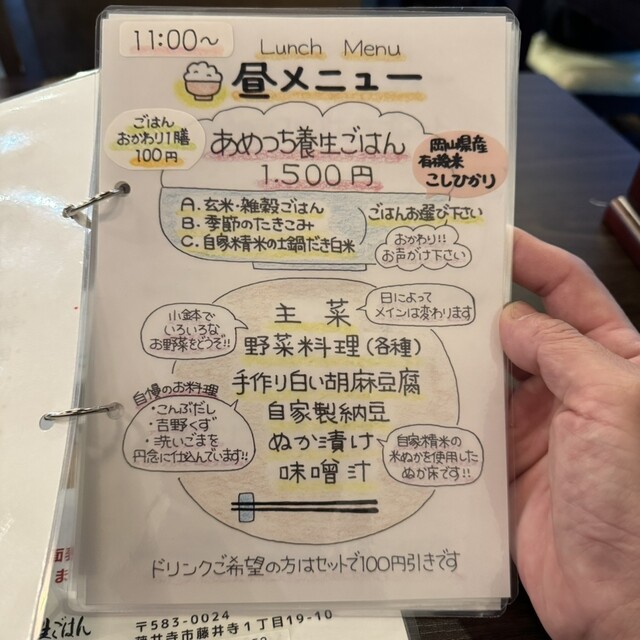 11:00～
Lunch Menu
昼メニュー
ごはん
おかわり1膳
100円
あめつち養生ごはん
1.500円
岡山県産
有機米
こしひかり
A. 玄米・雑穀ごはん
B. 季節のたきこみ
C. 自家精米の土鍋だき白米
ごはんお選び下さい
おかわり!!
お声がけ下さい
主菜
日によって
メインは変わります
小鉢で
いろいろな
お野菜をどうぞ!!
野菜料理(各種)
手作り白い胡麻豆腐
自家製納豆
ぬか漬け
味噌汁
自慢のお料理
・こんぶだし
・吉野くず
・洗いごまを
円念に仕込んでいます!!
自家精米の
米ぬかを使用した
ぬか床です!!
ドリンクご希望の方はセットで100円引きです
ごはん
〒583-0024
藤井寺市藤井寺1丁目19-10